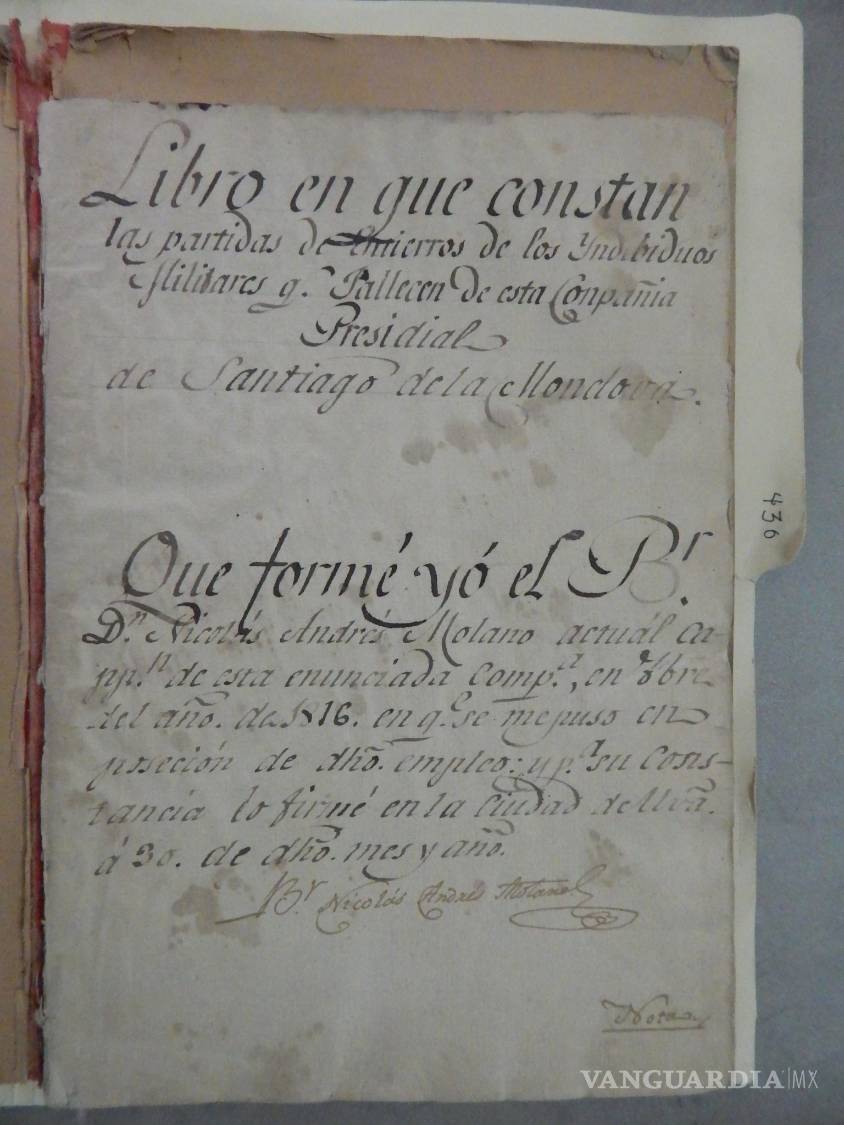 Libro en que constan
las partidas de entierros de los Yndibiduos
Militares q.e Fallecen de esta Conpañia
Presidial
de Santiago de la Mondova.
Que formé yó el B.r
D.n Nicolás Andrés Molano actuál Ca-
pp.n de esta enunciada Comp.a, en
del año. de 1816. en q.e se me puso en
poseción de dho. empleo: y p.a su Cons-
tancia lo firmé en la Ciudad de
á 30. de dho. mes y año.
B.r Nicolás Andrés Molano
Nota.
436
VANGUARDIA|MX